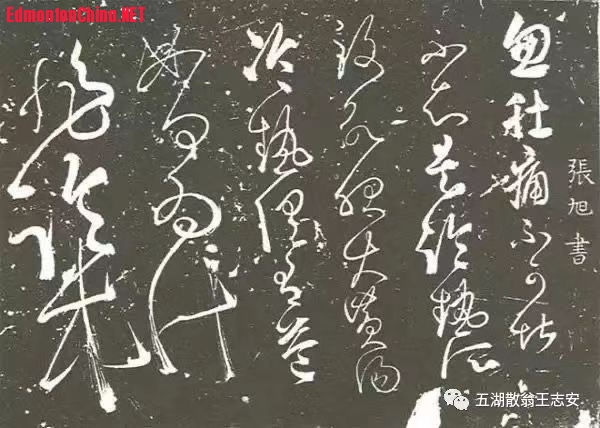 EdmontonChina.NET
張旭書
忽肚痛不可堪
不知是冷熱所
致欲服大黃湯
冷熱俱有益
如何為計
非臨床
五湖散翁王志安